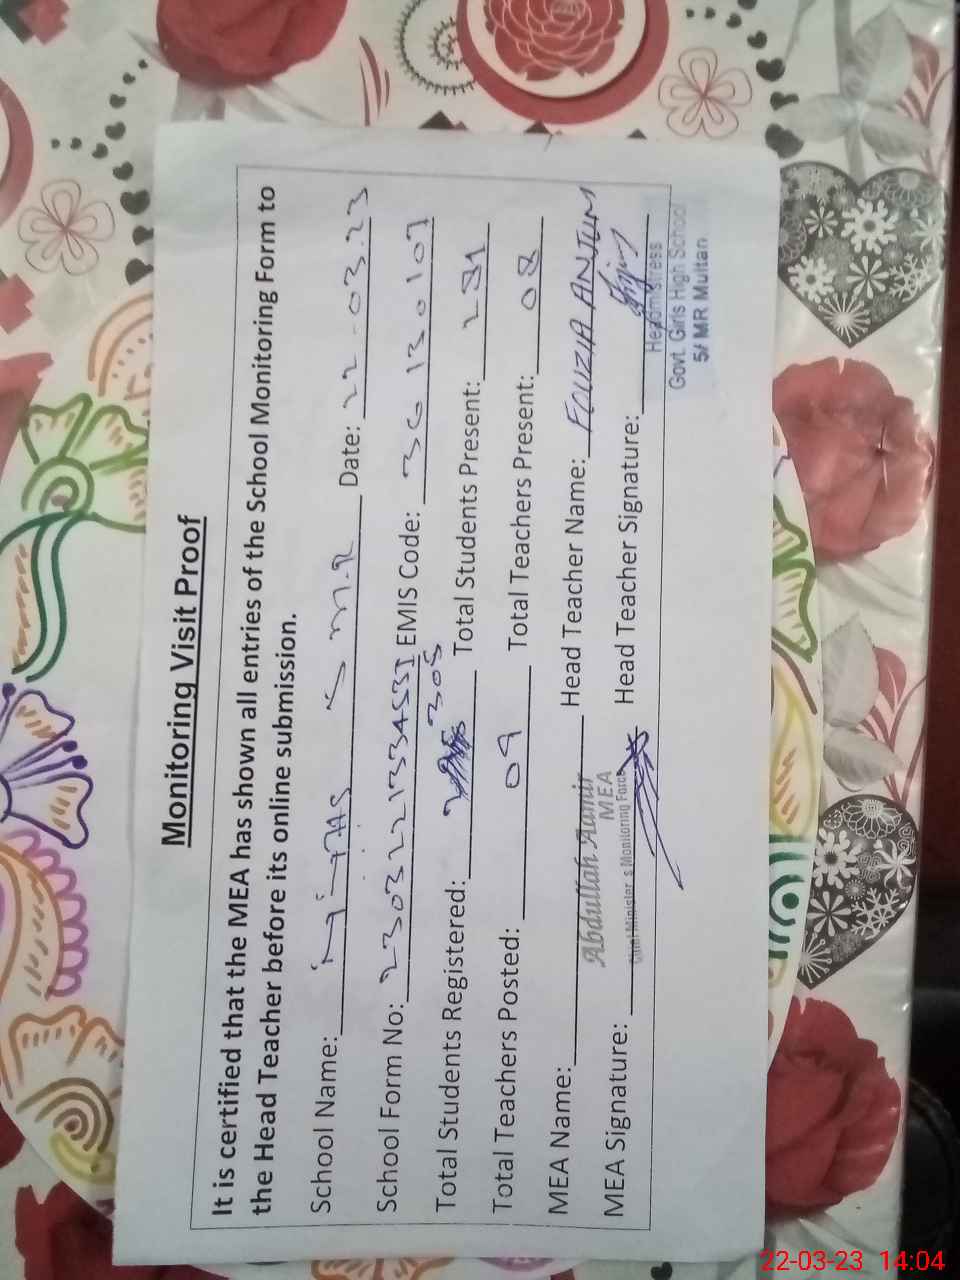 Monitoring Visit Proof
It is certified that the MEA has shown all entries of the School Monitoring Form to
the Head Teacher before its online submission.
School Name: 5 M.R Date: 22-03-23
School Form No: EMIS Code: 36130107
Total Students Registered: 305 Total Students Present: 281
Total Teachers Posted: 09 Total Teachers Present: 08
MEA Name: Abdullah Aamir Head Teacher Name: FOUZIA ANJUM
MEA
Chief Minister's Monitoring Force
MEA Signature: Head Teacher Signature:
Headmistress
Govt. Girls High School
5/ MR Multan
22-03-23 14:04